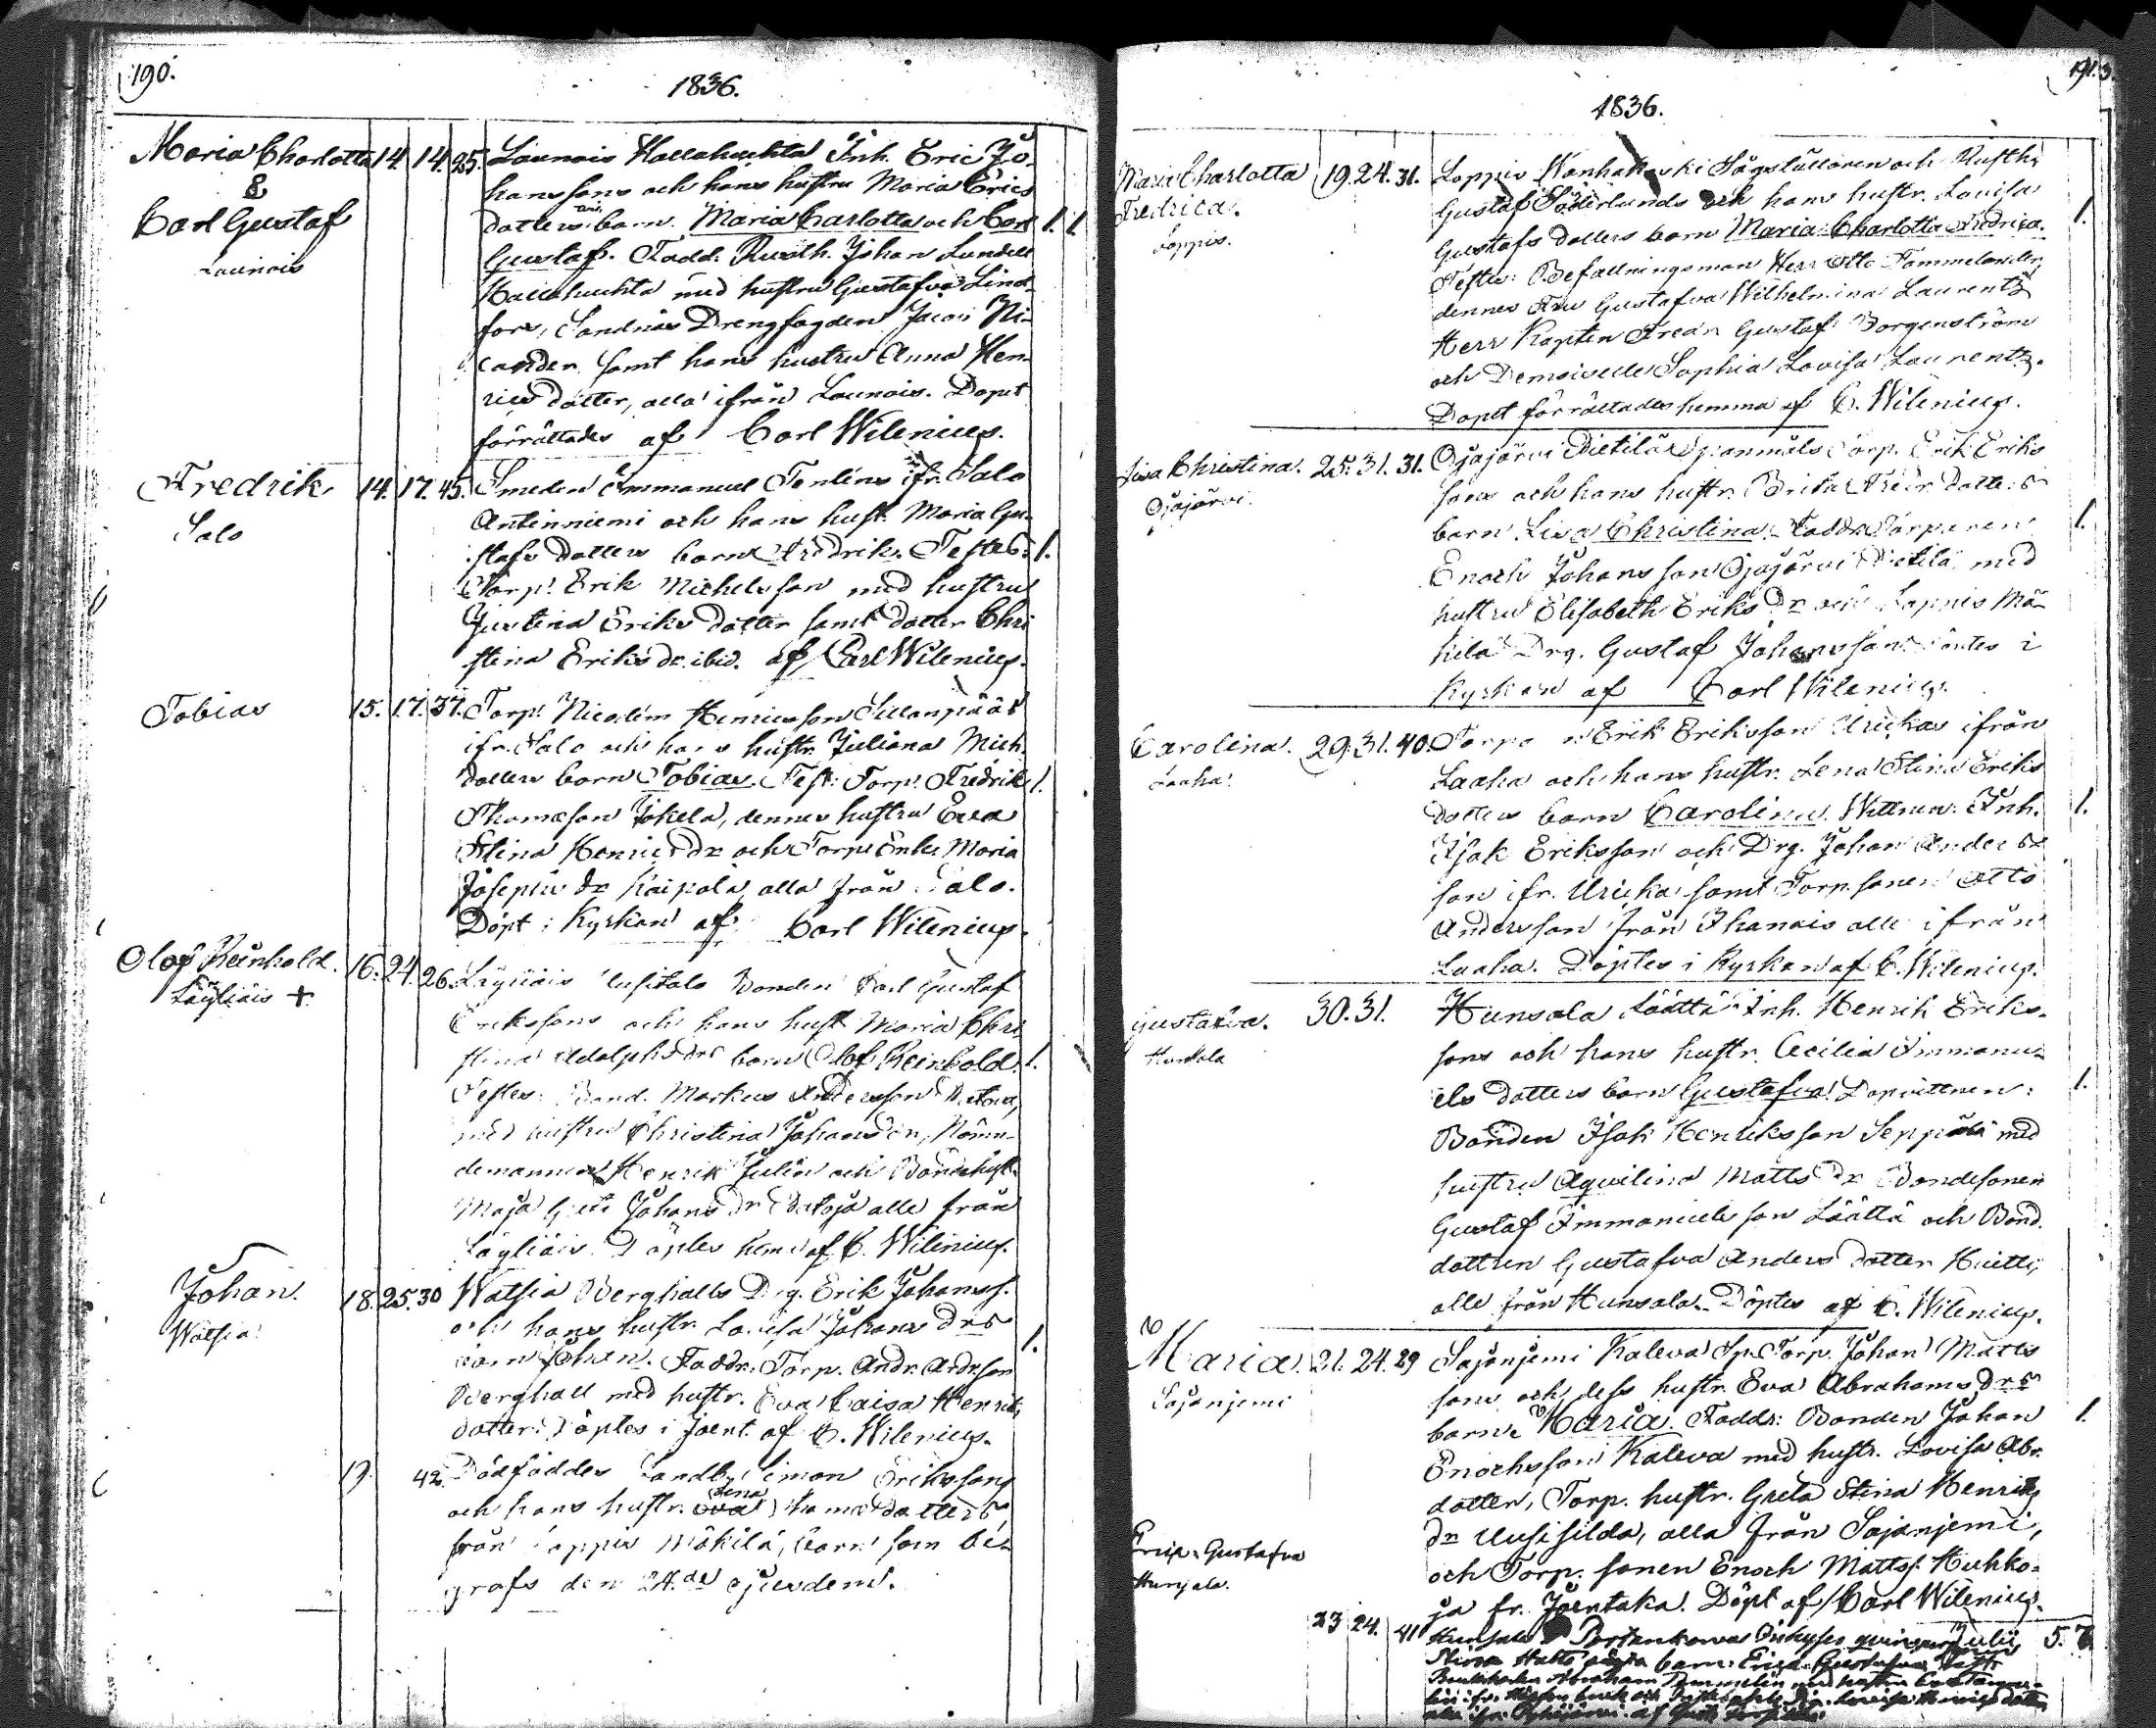 190.
1836.
Maria Charlotta 14. 14. 25. Launois Hallahuhta Inh. Eric Jo-
& hanssons och hans hustru Maria Erics
Carl Gustaf dotters barn. Maria Carlotta och Carl 1. 1.
Launois Gustaf. Fadd. Rusth. Johan Lundell
Hallahuhta med hustru Gustafva Lind-
fors, Sandnäs Drengfogden Jacob Ni-
cander samt hans hustru Anna Hen-
rics dotter, alla ifrån Launois. Döpt
förrättades af Carl Wilenius.
Fredrik 14. 17. 45. Smeden Emmanuel Tenlens ifr. Salo
Salo Anttinniemi och hans hust. Maria Gu-
stafs dotters barn Fredrik. Testes: 1.
Torp. Erik Michelsson med hustru
Justina Eriks dotter samt dotter Chri
stina Eriks dr. ibid. af Carl Wilenius.
Tobias 15. 17. 37. Torp. Henricsson Sillanpää
ifr. Salo och hans hustr. Juliana Mich.
dotters barn Tobias. Test: Torp. Fredrik 1.
Thomæson Jokela, dennes hustru Eva
Stina Henrics dr och Torp. Enk. Maria
Josephs dr Kaipola, alla från Salo.
Döpt i Kyrkan af Carl Wilenius.
Olof Reinhold. 16. 24. 26. Läyliäis Uusitalo Bonden Carl Gustaf
Läyliäis + Erikssons och hans hust Maria Chri
stina Adolphs drs barn Olof Reinhold. 1.
Testes: Bond. Markus Andersson
med hustru Christina Johans dr, Nämn-
demannen Henrik Julin och Bondehust.
Maja Greta Johans dr alle från
Läyliäis. Döptes hema af C. Wilenius.
Johan. 18. 25. 30 Watsia Berghalls Drg. Erik Johanss.
Watsia och hans hustr. Lovisa Johans drs
barn Johan. Faddr: Torp. Andr. Andrson 1.
Berghall med hustr. Eva Caisa Henriks
dotter. Döptes i Joent. af C. Wilenius.
19. 42. Dödföddes Landb. Simon Erikssons
Lena
och hans hustr. Eva Thomæ dotters,
från Loppis Mäkilä, barn som be-
grafs den 24.de ejusdem.
191.
1836.
Maria Charlotta 19. 24. 31. Loppis Wanhakoski Sågställaren och Rusth.
Fredrica. Gustaf Söderlunds och hans hustr. Lovisa
Loppis. Gustafs dotters barn Maria Charlotta Fredrica. 1.
Testes: Befallningsman Herr Otto Tammelander,
dennes Fru Gustafva Wilhelmina Laurentz
Herr Kapten Fredr. Gustaf Borgenström
och Demoiselle Sophia Lovisa Laurentz.
Dopet förrättades hemma af C. Wilenius.
Lisa Christina. 25. 31. 31. Ojajärvi Pietilä Spannmåls Torp. Erik Eriks
Ojajärvi. sons och hans hustr. Brita Fredr. dotters
barn Lisa Christina. Faddr. Torparen 1.
Enoch Johansson Ojajärvi Pietilä med
hustru Elisabeth Eriks Dr och Loppis Mä-
kilä Drg. Gustaf Johansson. Döptes i
Kyrkan af Carl Wilenius.
Carolina. 29. 31. 40. Torp. Erik Eriksson ifrån
Laaha. Laaha och hans hustr. Lena Stina Eriks
dotters barn Carolina. Wittnen: Inh. 1.
Isak Eriksson och Drg. Johan Anders
son ifr. samt Torp. sonen Otto
Andersson från Ihanois alle ifrån
Laaha. Döptes i Kyrkan af C. Wilenius.
Gustafva. 30. 31. Hunsala Läättä Inh. Henrik Eriks-
Hunsala sons och hans hustr. Cecilia Immanu-
els dotters barn Gustafva. Dopvittnen: 1.
Bonden Isak Henriksson Seppälä med
hustru Aqvilina Matts Dr Bondesonen
Gustaf Immanuels son Läättä och Bond.
dottren Gustafva Anders dotter Huitti,
alle från Hunsala. Döptes af C. Wilenius.
Maria. 21. 24. 29 Sajanjemi Kaleva Sp. Torp. Johan Matts
Sajanjemi sons och dess hustr. Eva Abrahams Drs
barn Maria. Faddr: Bonden Johan 1.
Enochsson Kaleva med hustr. Lovisa Abr.
dotter, Torp. hustr. Greta Stina Henriks
dr Uusisilda, alla från Sajanjemi,
och Torp. sonen Enoch Mattss. Huhko-
ja fr. Joentaka. Döpt af Carl Wilenius.
Eric. Gustafva
Hunjala.
23 24. 41 Hunsala
Stina Matts barn: Erica Gustafva
Abraham Tammelin med hustru Eva